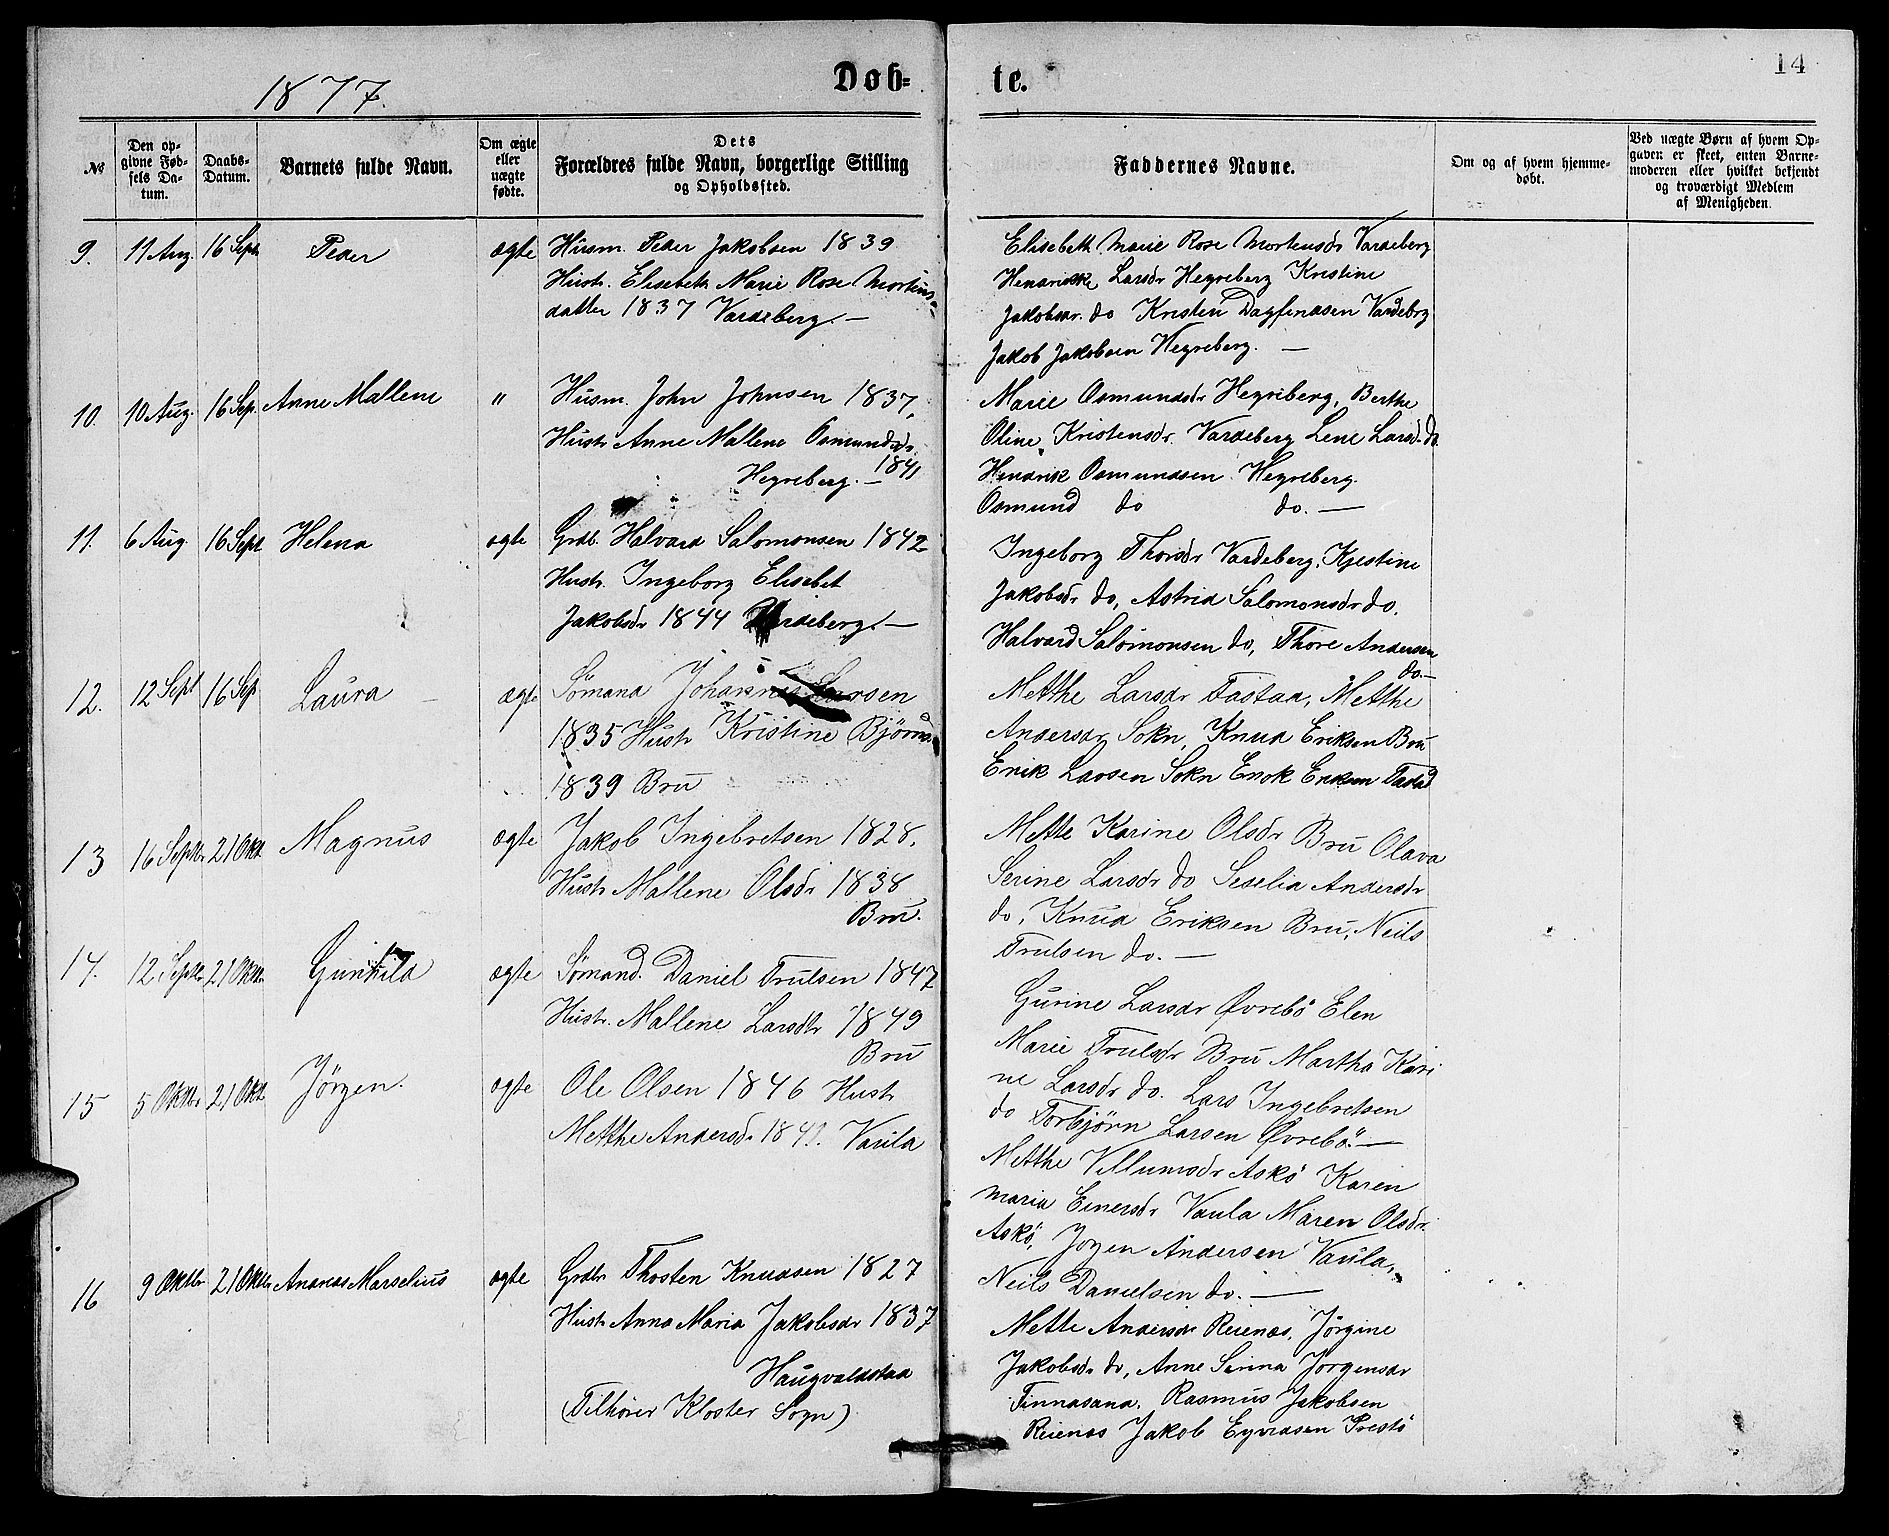 1877.
Døb-
te.
14
№
Den op-
givne Fød-
sels Da-
tum.
Daabs-
Datum.
Barnets fulde Navn.
Om ægte
eller
uægte
fødte.
Dets
Forældres fulde Navn, borgerlige Stilling
og Opholdssted.
Faddernes Navne.
Om og af hvem hjemme-
døbt.
Ved uægte Børn af hvem Op-
gaven er skeet, enten Barne-
moderen eller hvilket bekjendt
og troværdigt Medlem
af Menigheden.
9. 11 Aug. 16 Sept. Peder ægte Husm. Peder Jakobsen 1839
Hustr. Elisebeth Marie Rose Mortens-
datter 1837 Vardeberg. —
Elisebeth Marie Rose Mortensdr Vardeberg
Hendrikke Larsdr Hegreberg Kristine
Jakobsdr. do Kristen Dagfinasen Vardebrg
Jakob Jakobsen Hegreberg. —
10. 10 Aug. 16 Sep. Anne Mallene " Husm. John Johnsen 1837,
Hustr Anne Mallene Osmundsdr
Hegreberg. — 1841
Marie Osmundsdr Hegreberg, Berthe
Oline, Kristensdr. Vardeberg Lene Larsd. do.
Hendrik Osmundsen Hegreberg.
Osmund do do. —
11. 6 Aug. 16 Sept Helena ægte Grdb. Halvard Salomonsen 1842
Hustr. Ingeborg Elisebet
Jakobsdr 1844 Vardeberg. —
Ingeborg Thorsdr Vardeberg, Kjestine
Jakobsdr do, Astrid Salomonsdr do.
Halvard Salomonsen do, Thore Andersen
do. —
12. 12 Sept 16 Sep Laura — ægte Sømand Johannes Larsen
1835 Hustr Kristine Bjørns
1839 Bru
Metthe Larsdr Tastad, Metthe
Andersdr Sokn, Knud Eriksen Bru
Erik Larsen Sokn Enok Eriksen Tastad
13 16 Septbr 21 Okt Magnus ægte Jakob Ingebretsen 1828.
Hustr Mallene Olsdr 1838
Bru.
Mette Karine Olsdr Bru Olava
Serine Larsdr do Seselia Andersdr
do, Knud Eriksen Bru, Neils
Trulsen do. —
14. 12 Septbr 21 Oktbr Gunhild ægte Sømand. Daniel Trulsen 1847
Hustr. Mallene Larsdtr 1849
Bru
Gurine Larsdr Øvrebö Elen
Marie Trulsdr Bru Martha Kari
ne Larsdr do. Lars Ingebretsen
do Torbjörn Larsen Øvrebö. —
15 5 Oktbr 21 Okt Jörgen. ægte Ole Olsen 1846 Hustr
Metthe Andersdr 1841. Vaula
Metthe Villumsdr Askö Karen
Maria Einersdr Vaula Maren Olsdr.
Askö, Jörgen Andersen Vaula,
Neils Danielsen do. —
16 9 Oktbr 21 Oktbr Andreas Marselius ægte Grdbr Thosten Knudsen 1827
Hustr Anna Maria Jakobsdr 1837
Haugvaldstad
(Tilhører Kloster Sogn)
Mette Andersdr Reienæs, Jörgine
Jakobsdr do, Anne Serina Jörgensdr
Finnasand. Rasmus Jakobsen
Reienæs Jakob Eyvindsen Prestö